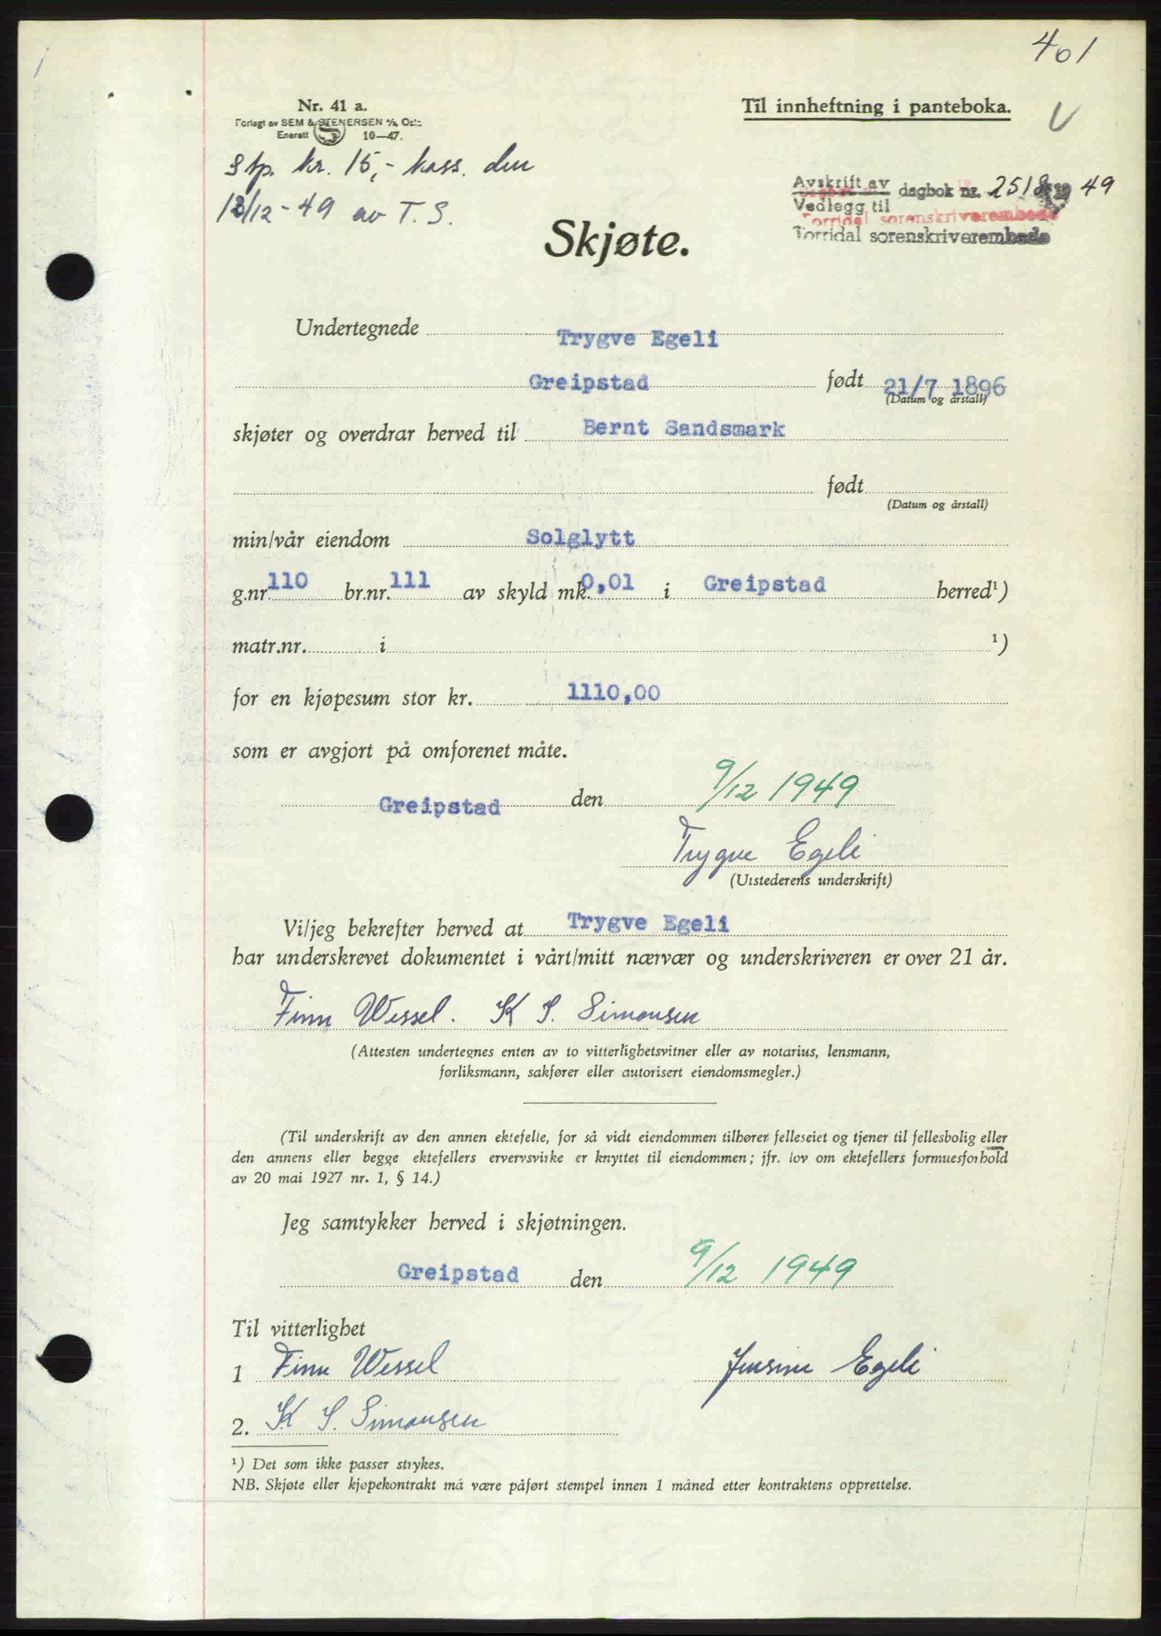 401
Nr. 41 a.
Forlagt av SEM & STENERSEN A/S, Oslo
Enerett 10—47.
Til innheftning i panteboka.
V
Stp. kr. 15,- kass. den
13/12-49 av T. S.
Avskrift av dagbok nr. 2518 49
Vedlegg til
Torridal sorenskriverembede
Torridal sorenskriverembede
Skjøte.
Undertegnede Trygve Egeli
Greipstad født 21/7 1896
(Datum og årstall)
skjøter og overdrar herved til Bernt Sandsmark
født
(Datum og årstall)
min/vår eiendom Solglytt
g.nr. 110 br.nr. 111 av skyld mk. 0,01 i Greipstad herred¹)
matr.nr. i ¹)
for en kjøpesum stor kr. 1110,00
som er avgjort på omforenet måte.
Greipstad den 9/12 1949
Trygve Egeli
(Utstederens underskrift)
Vi/jeg bekrefter herved at Trygve Egeli
har underskrevet dokumentet i vårt/mitt nærvær og underskriveren er over 21 år.
Finn Wessel. K S. Simonsen
(Attesten undertegnes enten av to vitterlighetsvitner eller av notarius, lensmann,
forliksmann, sakfører eller autorisert eiendomsmegler.)
(Til underskrift av den annen ektefelle, for så vidt eiendommen tilhører felleseiet og tjener til fellesbolig eller
den annens eller begge ektefellers ervervsvirke er knyttet til eiendommen; jfr. lov om ektefellers formuesforhold
av 20 mai 1927 nr. 1, § 14.)
Jeg samtykker herved i skjøtningen.
Greipstad den 9/12 1949
Til vitterlighet
1 Finn Wessel Jensine Egeli
2. K S. Simonsen
¹) Det som ikke passer strykes.
NB. Skjøte eller kjøpekontrakt må være påført stempel innen 1 måned etter kontraktens opprettelse.